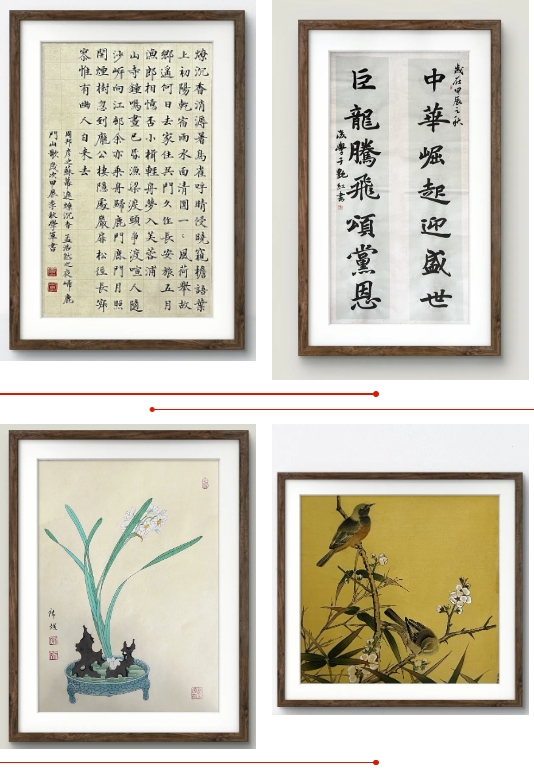 燎沉香消溽暑鳥雀呼晴侵曉窺檐語葉
上初陽乾宿雨水面清圓一一風荷舉故
鄉遙何日去家住吳門久作長安旅五月
漁郎相憶否小楫輕舟夢入芙蓉浦
山寺鐘鳴晝已昏漁梁渡頭爭渡喧人隨
沙岸向江邨余亦乘舟歸鹿門鹿門月照
開煙樹忽到龐公棲隱處巖扉松徑長寂
寥惟有幽人自來去
周邦彥之蘇幕遮燎沉香 孟浩然之夜歸鹿
門山歌歲次甲辰
歲在甲辰之秋
中華崛起迎盛世
巨龍騰飛頌黨恩